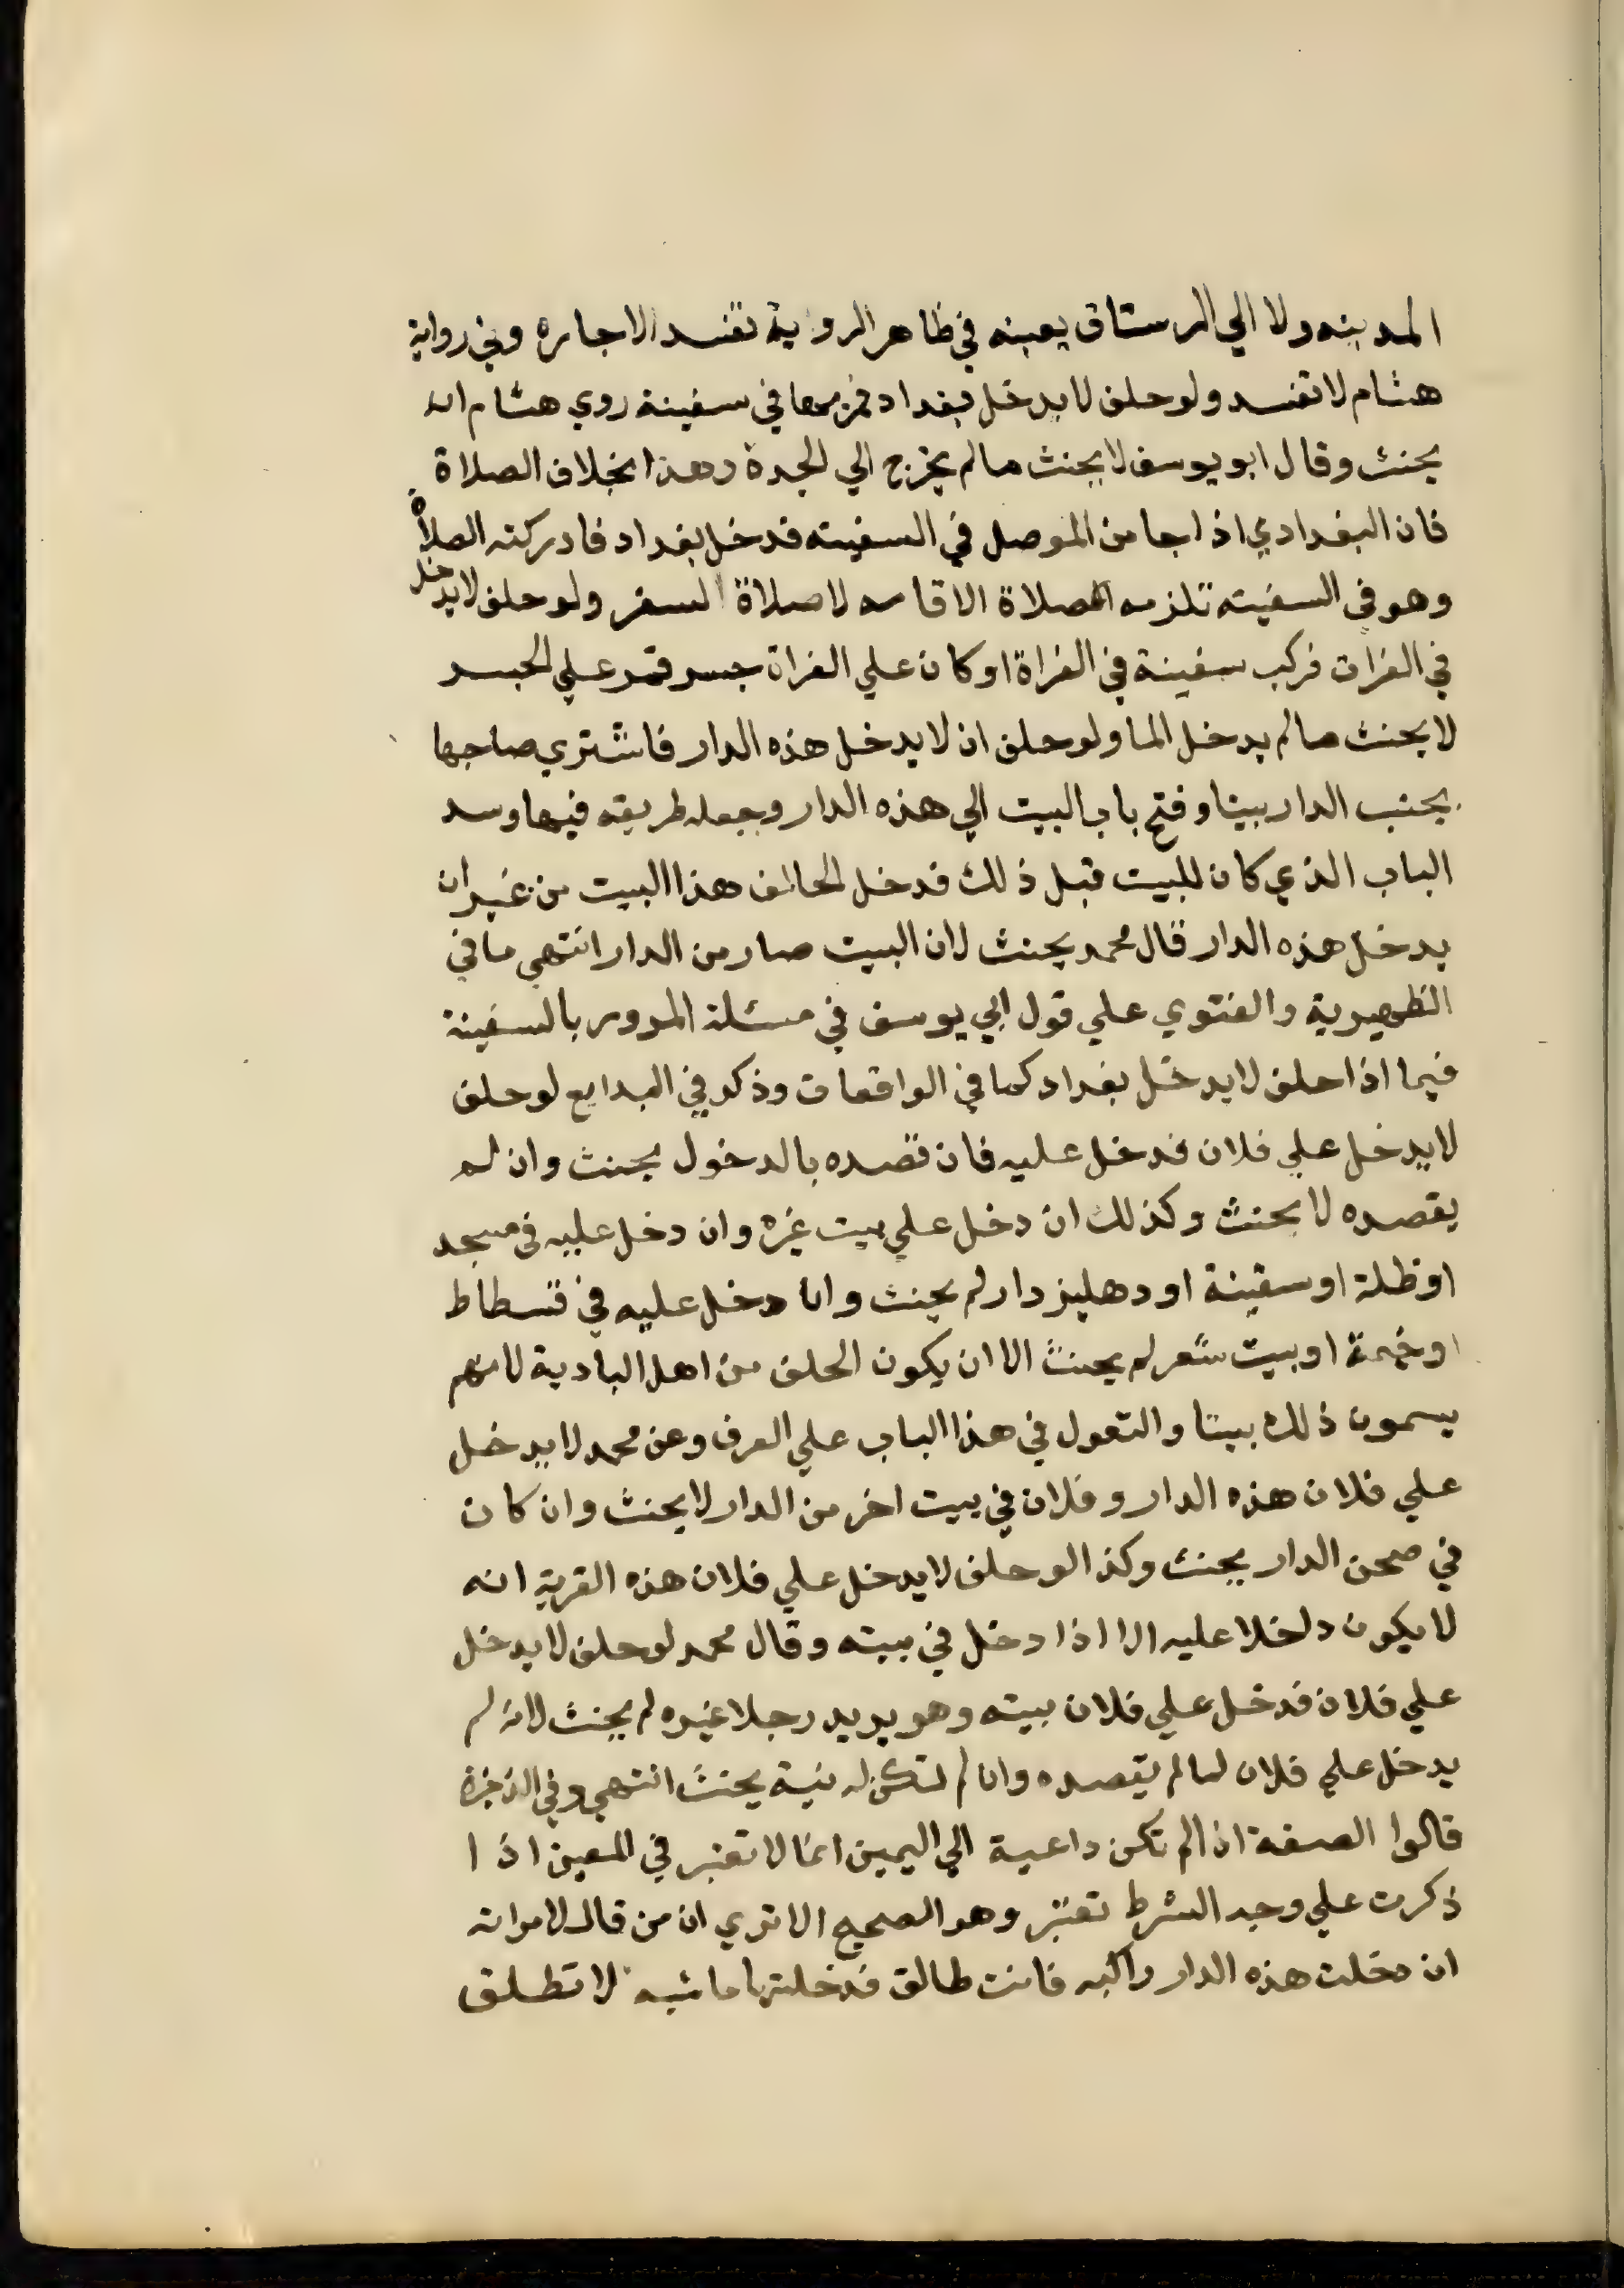 المدينه ولا الي الرستاق بعينه في ظاهر الرواية تفسد الاجاره وفي رواية
هشام لا تفسد ولو حلف لا يدخل بغداد فمر بها في سفينة روي هشام انه
يحنث وقال ابو يوسف لا يحنث ما لم يخرج الي الجدة وهذا بخلاف الصلاة
فان البغدادي اذا جا من الموصل في السفينه فدخل بغداد فادركته الصلاة
وهو في السفينه تلزمه الصلاة الاقامه لا صلاة السفر ولو حلف لا يدخل
في الفرات فركب سفينة في الفراة او كان علي الفراة جسر فمر علي الجسر
لا يحنث ما لم يدخل الما ولو حلف ان لا يدخل هذه الدار فاشتري صاحبها
بجنب الدار بيتا وفتح باب البيت الي هذه الدار وجعله طريقه فيها وسد
الباب الذي كان للبيت قبل ذلك فدخل الحالف هذا البيت من غير ان
يدخل هذه الدار قال محمد يحنث لان البيت صار من الدار انتهي ما في
الظهيرية والفتوي علي قول ابي يوسف في مسئلة المرور بالسفينة
فيما اذا حلف لا يدخل بغداد كما في الواقعات وذكر في البدايع لو حلف
لا يدخل علي فلان فدخل عليه فان قصده بالدخول يحنث وان لم
يقصده لا يحنث وكذلك ان دخل علي بيت غيره وان دخل عليه في مسجد
او ظلة او سقينة او دهليز دار لم يحنث وان دخل عليه في فسطاط
او خيمة او بيت شعر لم يحنث الا ان يكون الحلف من اهل البادية لانهم
يسمون ذلك بيتا والتعول في هذا الباب علي العرف وعن محمد لا يدخل
علي فلان هذه الدار وفلان في بيت اخر من الدار لا يحنث وان كان
في صحن الدار يحنث وكذا لو حلف لا يدخل علي فلان هذه القرية انه
لا يكون داخلا عليه الا اذا دخل في بيته وقال محمد لو حلف لا يدخل
علي فلان فدخل علي فلان بيته وهو يريد رجلا غيره لم يحنث لانه لم
يدخل علي فلان لما لم يقصده وان لم تكن له نية يحنث انتهي وفي الذخيرة
قالوا الصفة اذا لم تكن داعية الي اليمين انما لا تعتبر في المعين اذا
ذكرت علي وجه الشرط تعتبر وهو الصحيح الا تري ان من قال لامراته
ان دخلت هذه الدار راكبه فانت طالق فدخلتها ماشيه لا تطلق